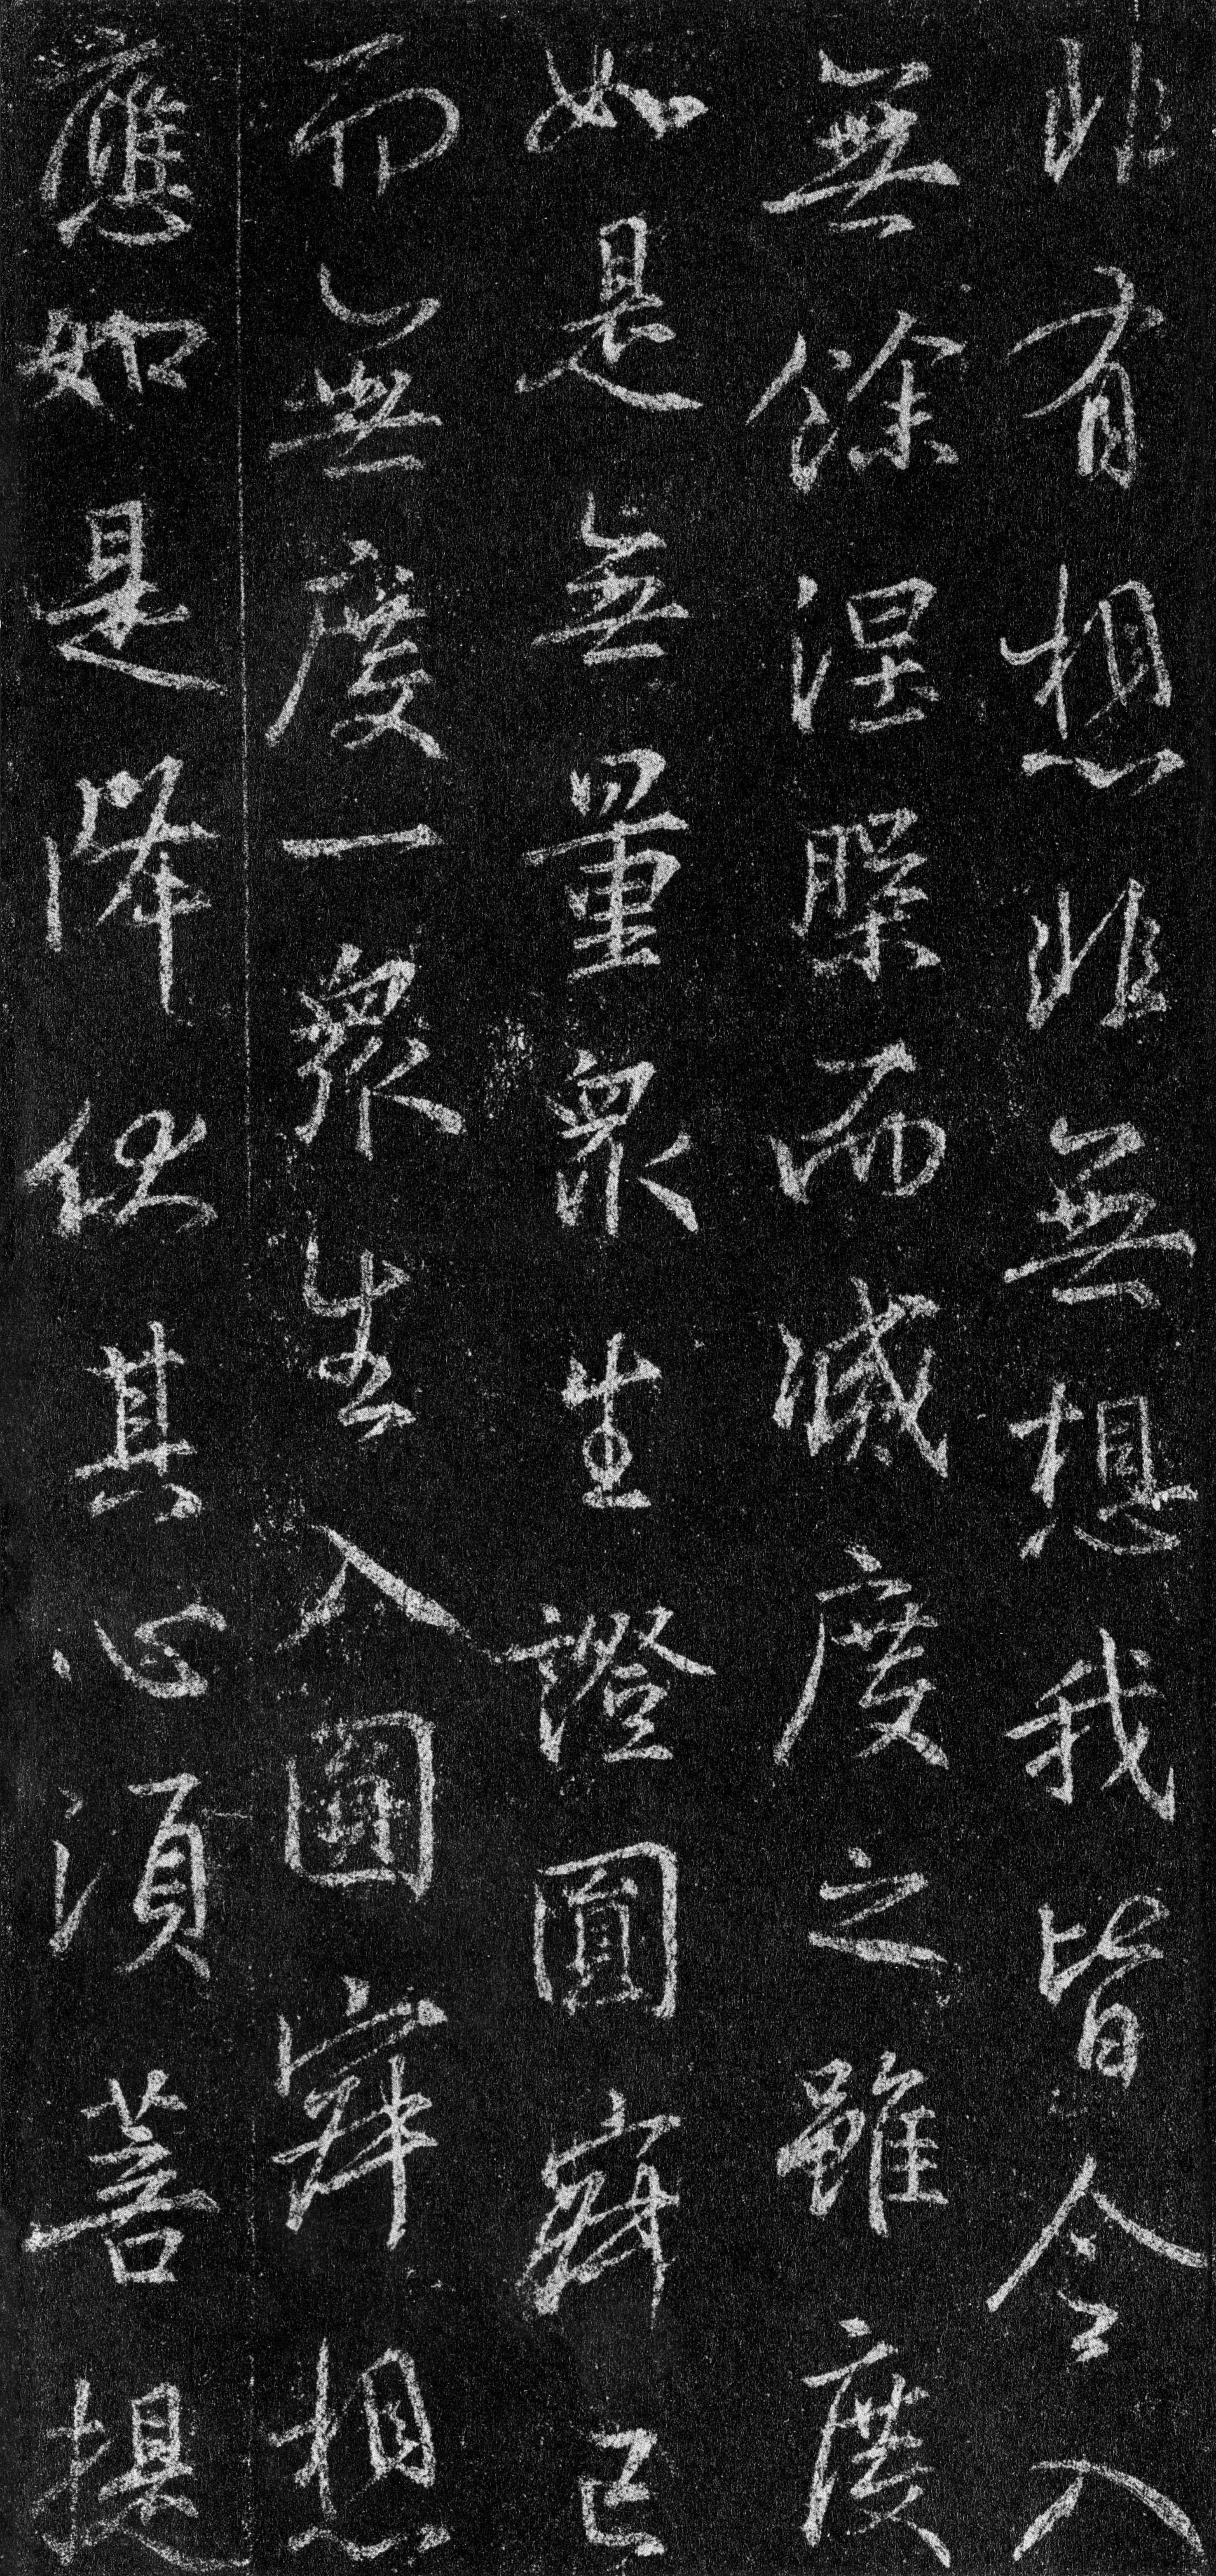 非有想非無想我皆令入
無餘涅槃而滅度之雖度
如是無量眾生證圓寂已
而無度一眾生入圓寂想
應如是降伏其心須菩提